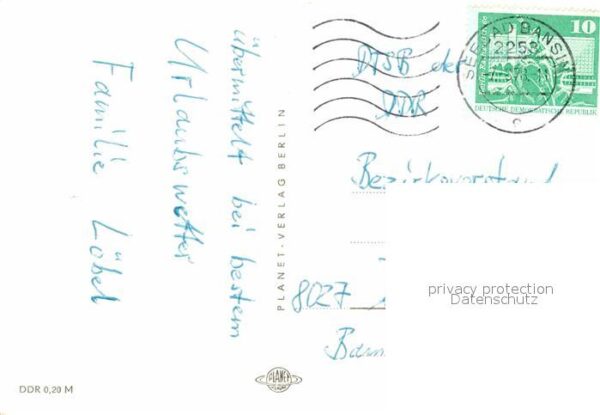 übermittelt bei bestem
Urlaubswetter
Familie Löbel
PLANET-VERLAG BERLIN
PLANET
DDR 0,20 M
10
SEEBAD BANSIN
2253
c
DEUTSCHE DEMOKRATISCHE REPUBLIK
DTSB der
DDR
Bezirksvorstand
8027
privacy protection
Datenschutz